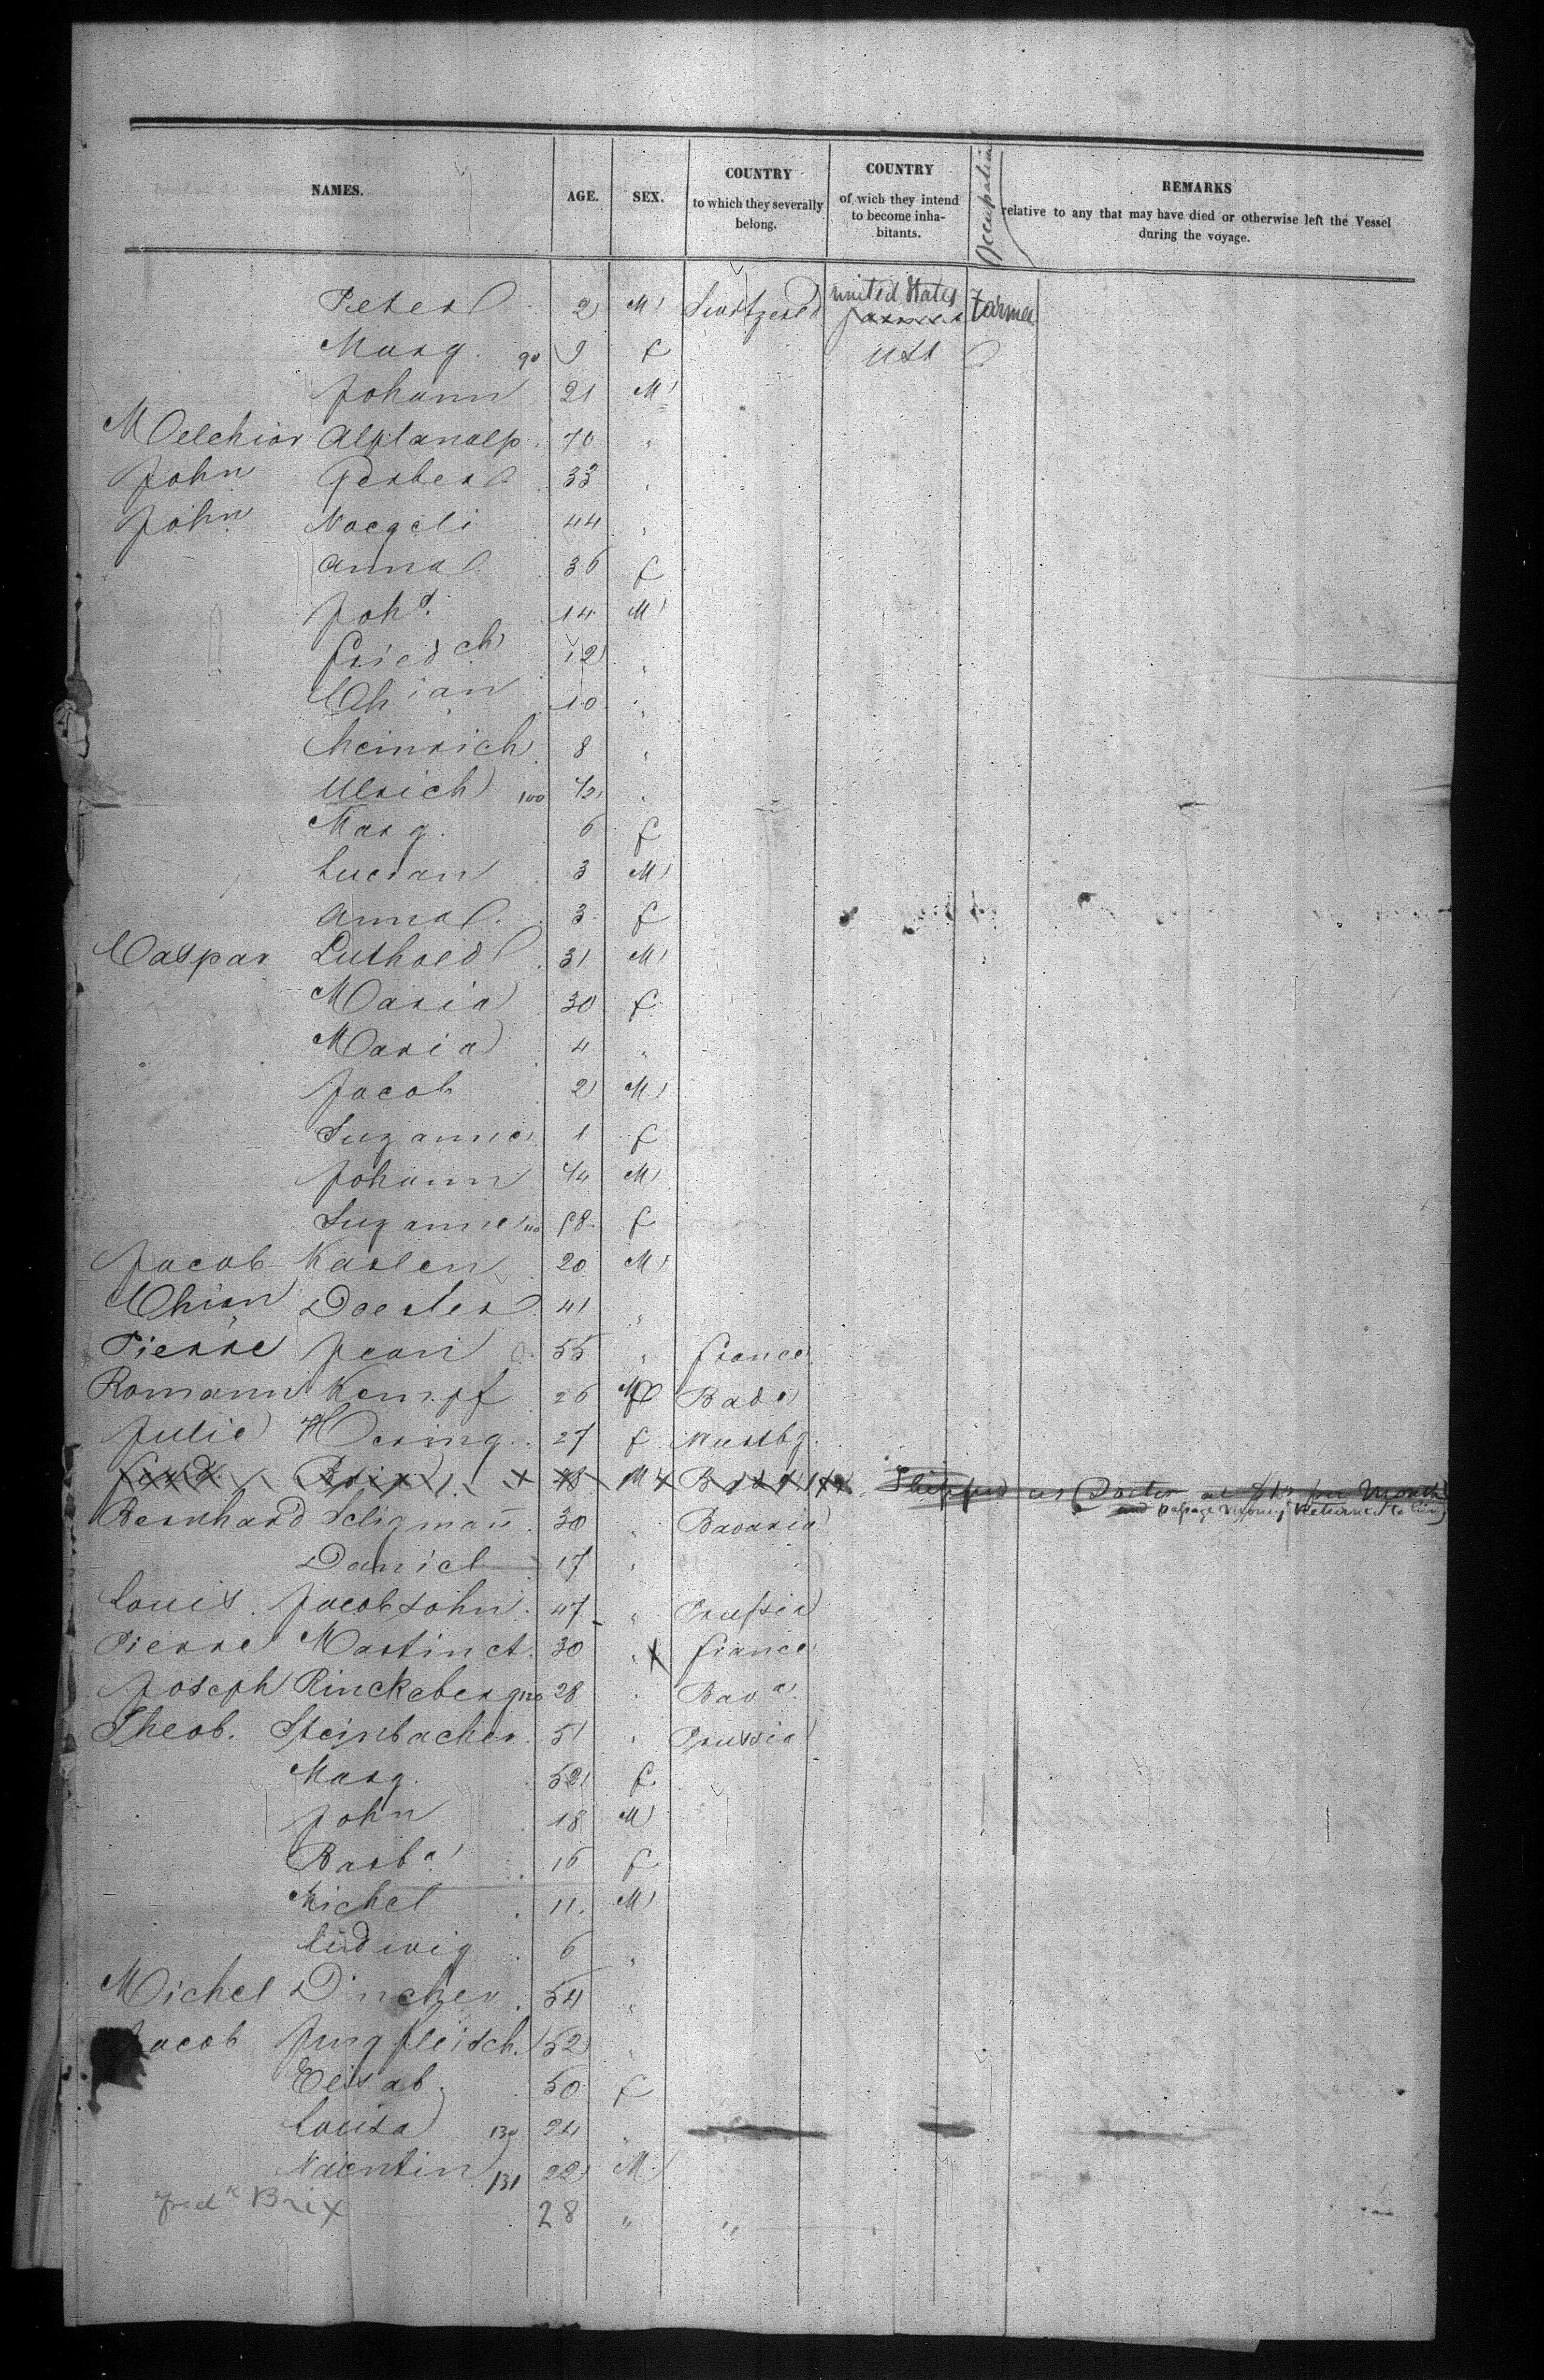 NAMES. AGE. SEX. COUNTRY to which they severally belong. COUNTRY of wich they intend to become inha-bitants. Occupation REMARKS relative to any that may have died or otherwise left the Vessel during the voyage.
Peter 2 M Switzerld United States Farmer
Marg. 90 9 f USt
Johann 21 M
Melchior Alplanalp 70 "
John Gerber 33 "
John Naegeli 44 "
Anna 36 f
Joh'd. 14 M
Fried ch 12 "
Chian 10 "
Heinrich 8 "
Ulrich 100 1/2 "
Marg. 6 f
Lucian 3 M
Anna 3 f
Caspar Luthold 31 M
Maria 30 f
Maria 4 "
Jacob 2 M
Suzanne 1 f
Johann 1/4 M
Suzanne 110 58 f
Jacob Karlen 20 M
Chian 41 "
Pierre Jean 55 " France
Romann Kempf 26 M Bade
Julie Hering 27 f Wurtbg.
Ferd. Brix 28 M Shipped as Doctor at $1 per Month
and passage Money Returned to him
Bernhard Seligman̄ 30 " Bavaria
Daniel 17 "
Louis Jacobsohn 47 " Prussia
Pierre Martinet 30 " X France
Joseph Rinckeberg 120 28 " Bava.
Theob. Steinbacher 51 " Prussia
Marg. 52 f
John 18 M
Barba. 16 f
Michel 11 M
Ludwig 6 "
Michel Dincher 54 "
Jacob Jungfleisch. 52 "
Elisab. 50 f
Louisa 130 24 "
Valentin 131 22 M
Fredk Brix 28 " "